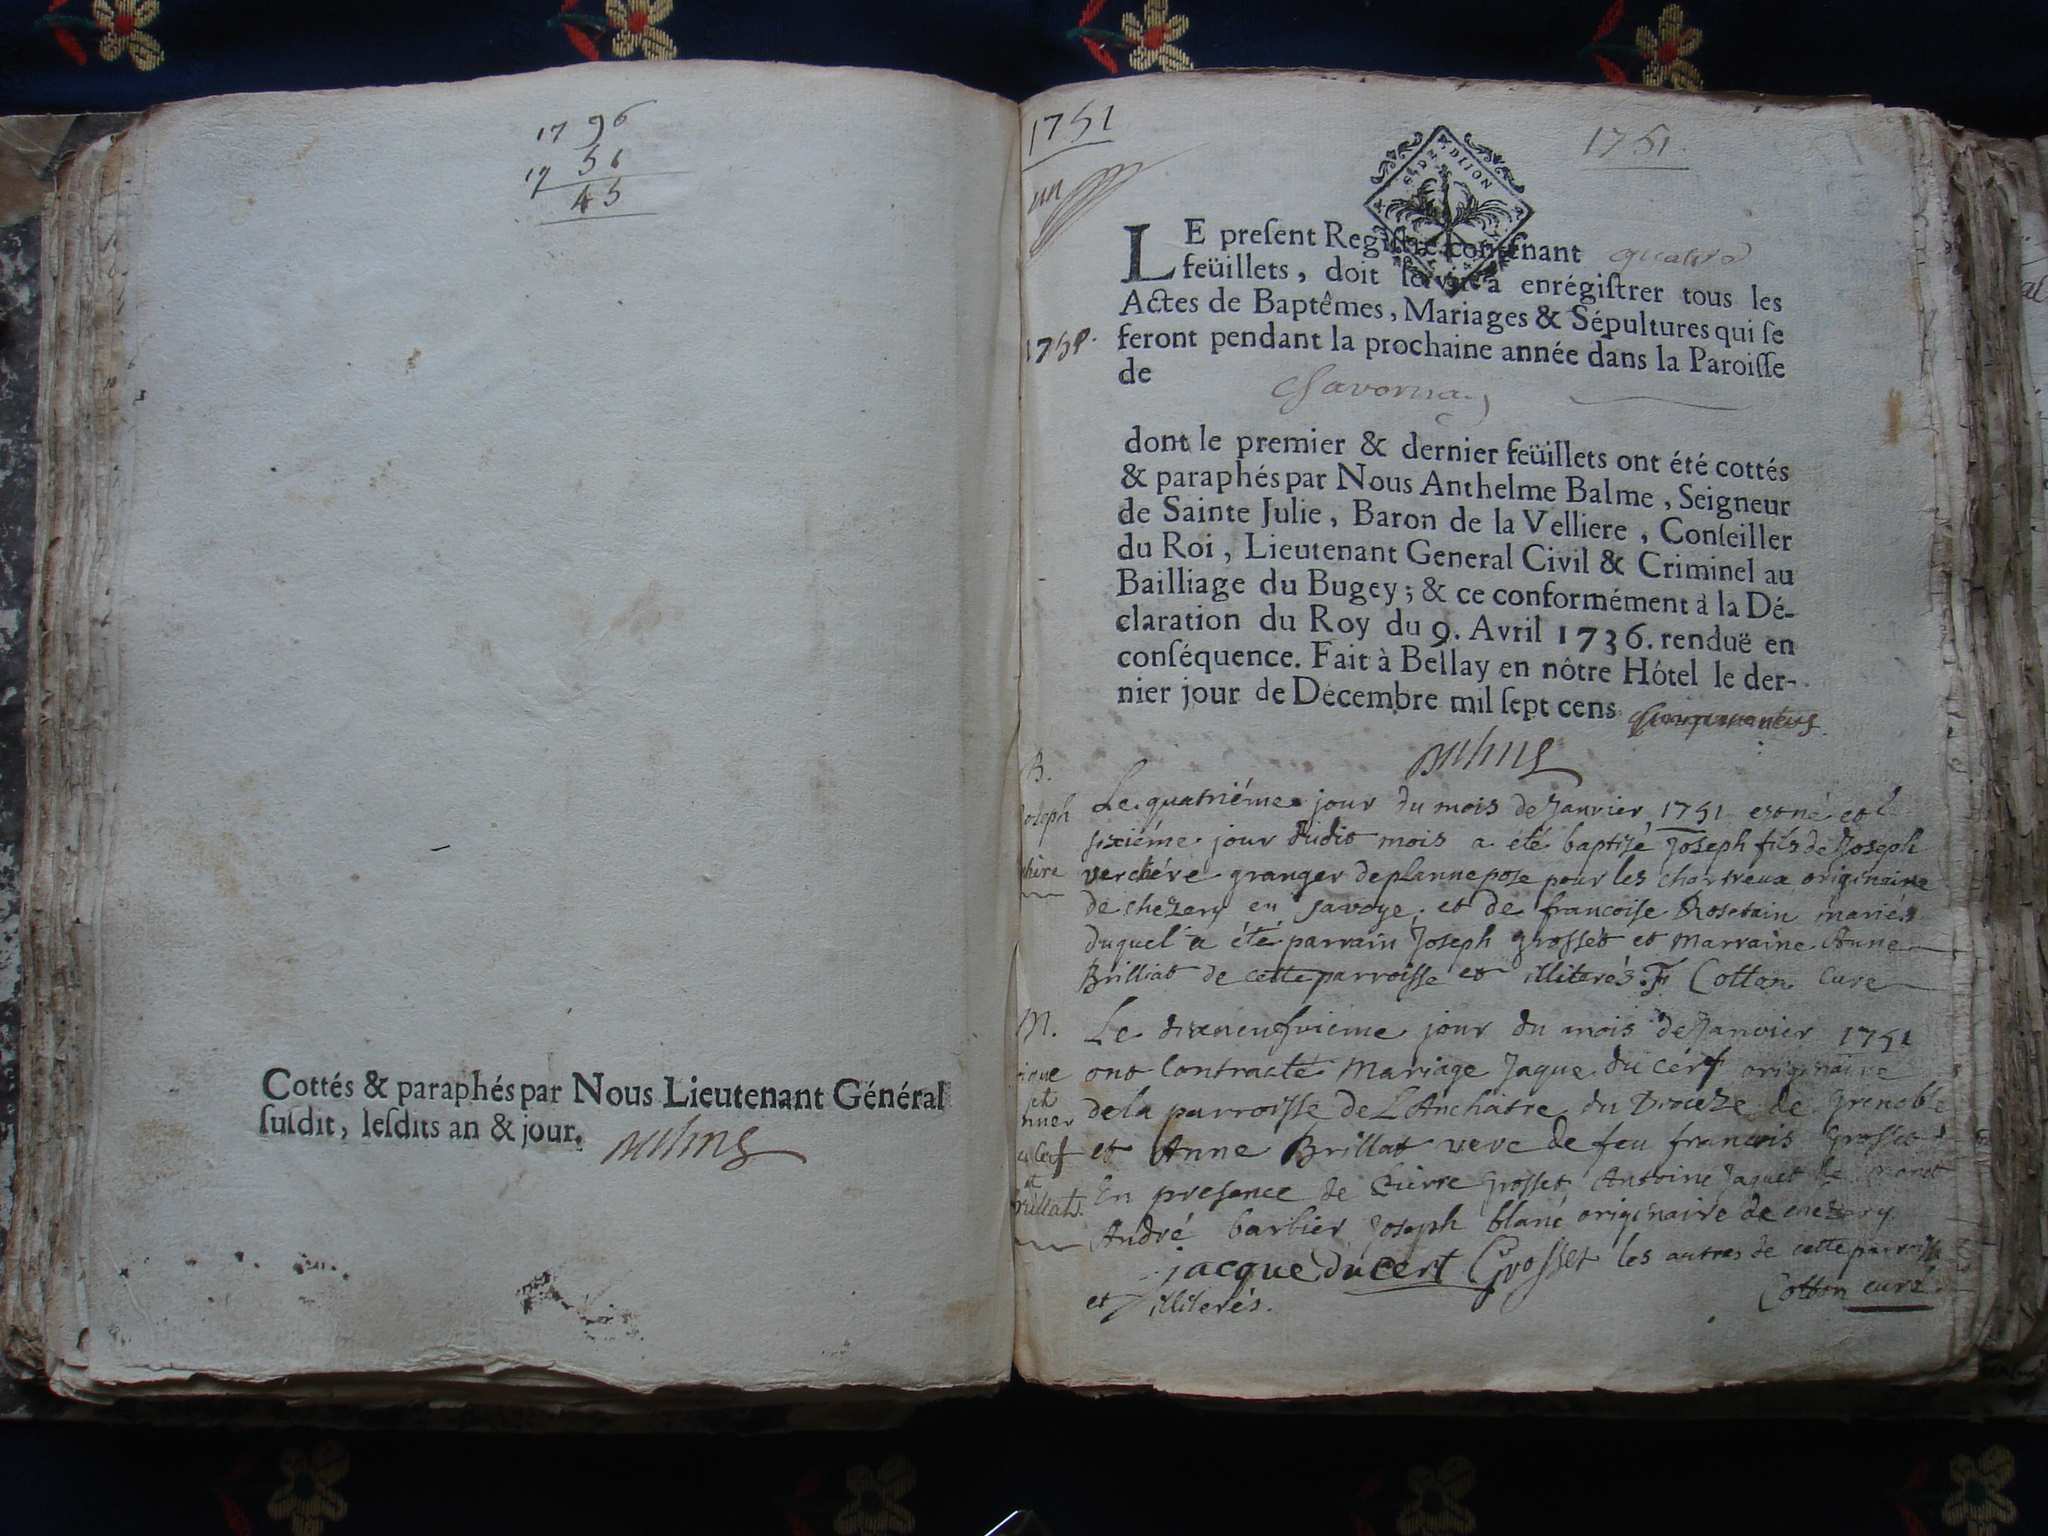 1796
17 56
45
Cottés & paraphés par Nous Lieutenant Général
susdit, lesdits an & jour.
1751
un
1751
LE preſent Regiſtre contenant quatre
feüillets, doit ſervir à enrégiſtrer tous les
Actes de Baptêmes, Mariages & Sépultures qui ſe
feront pendant la prochaine année dans la Paroiſſe
de Chavornay
dont le premier & dernier feüillets ont été cottés
& paraphés par Nous Anthelme Balme, Seigneur
de Sainte Julie, Baron de la Velliere, Conſeiller
du Roi, Lieutenant General Civil & Criminel au
Bailliage du Bugey; & ce conformément à la Dé-
claration du Roy du 9. Avril 1736. renduë en
conſéquence. Fait à Bellay en nôtre Hôtel le der-
nier jour de Décembre mil ſept cens cinquante
B.
oseph
chère
Le quatriéme jour du mois de Janvier 1751 est né et
sixiéme jour dudit mois a été baptisé Joseph fils de Joseph
verchére granger de plannepose pour les chartreux originaire
de chezery en savoye, et de francoise Rosetain mariés
duquel a été parrain Joseph grosset et Marraine Anne
Brilliat de cette parroisse et illiterés. Fr Cotton curé
M.
et
Cerf
et
brillat
Le dixneufvieme jour du mois de Janvier 1751
ont Contracté Mariage Jaque du cerf originaire
de la parroisse de L'Anchatre du Dioceze de Grenoble
et Anne Brillat veve de feu francois Grosset
En presence de Pierre Grosset, Antoine Jaquet
André barbier, Joseph blanc originaire de chezery
jacque ducert Grosset les autres de cette parroisse
et illiterés. Cotton curé